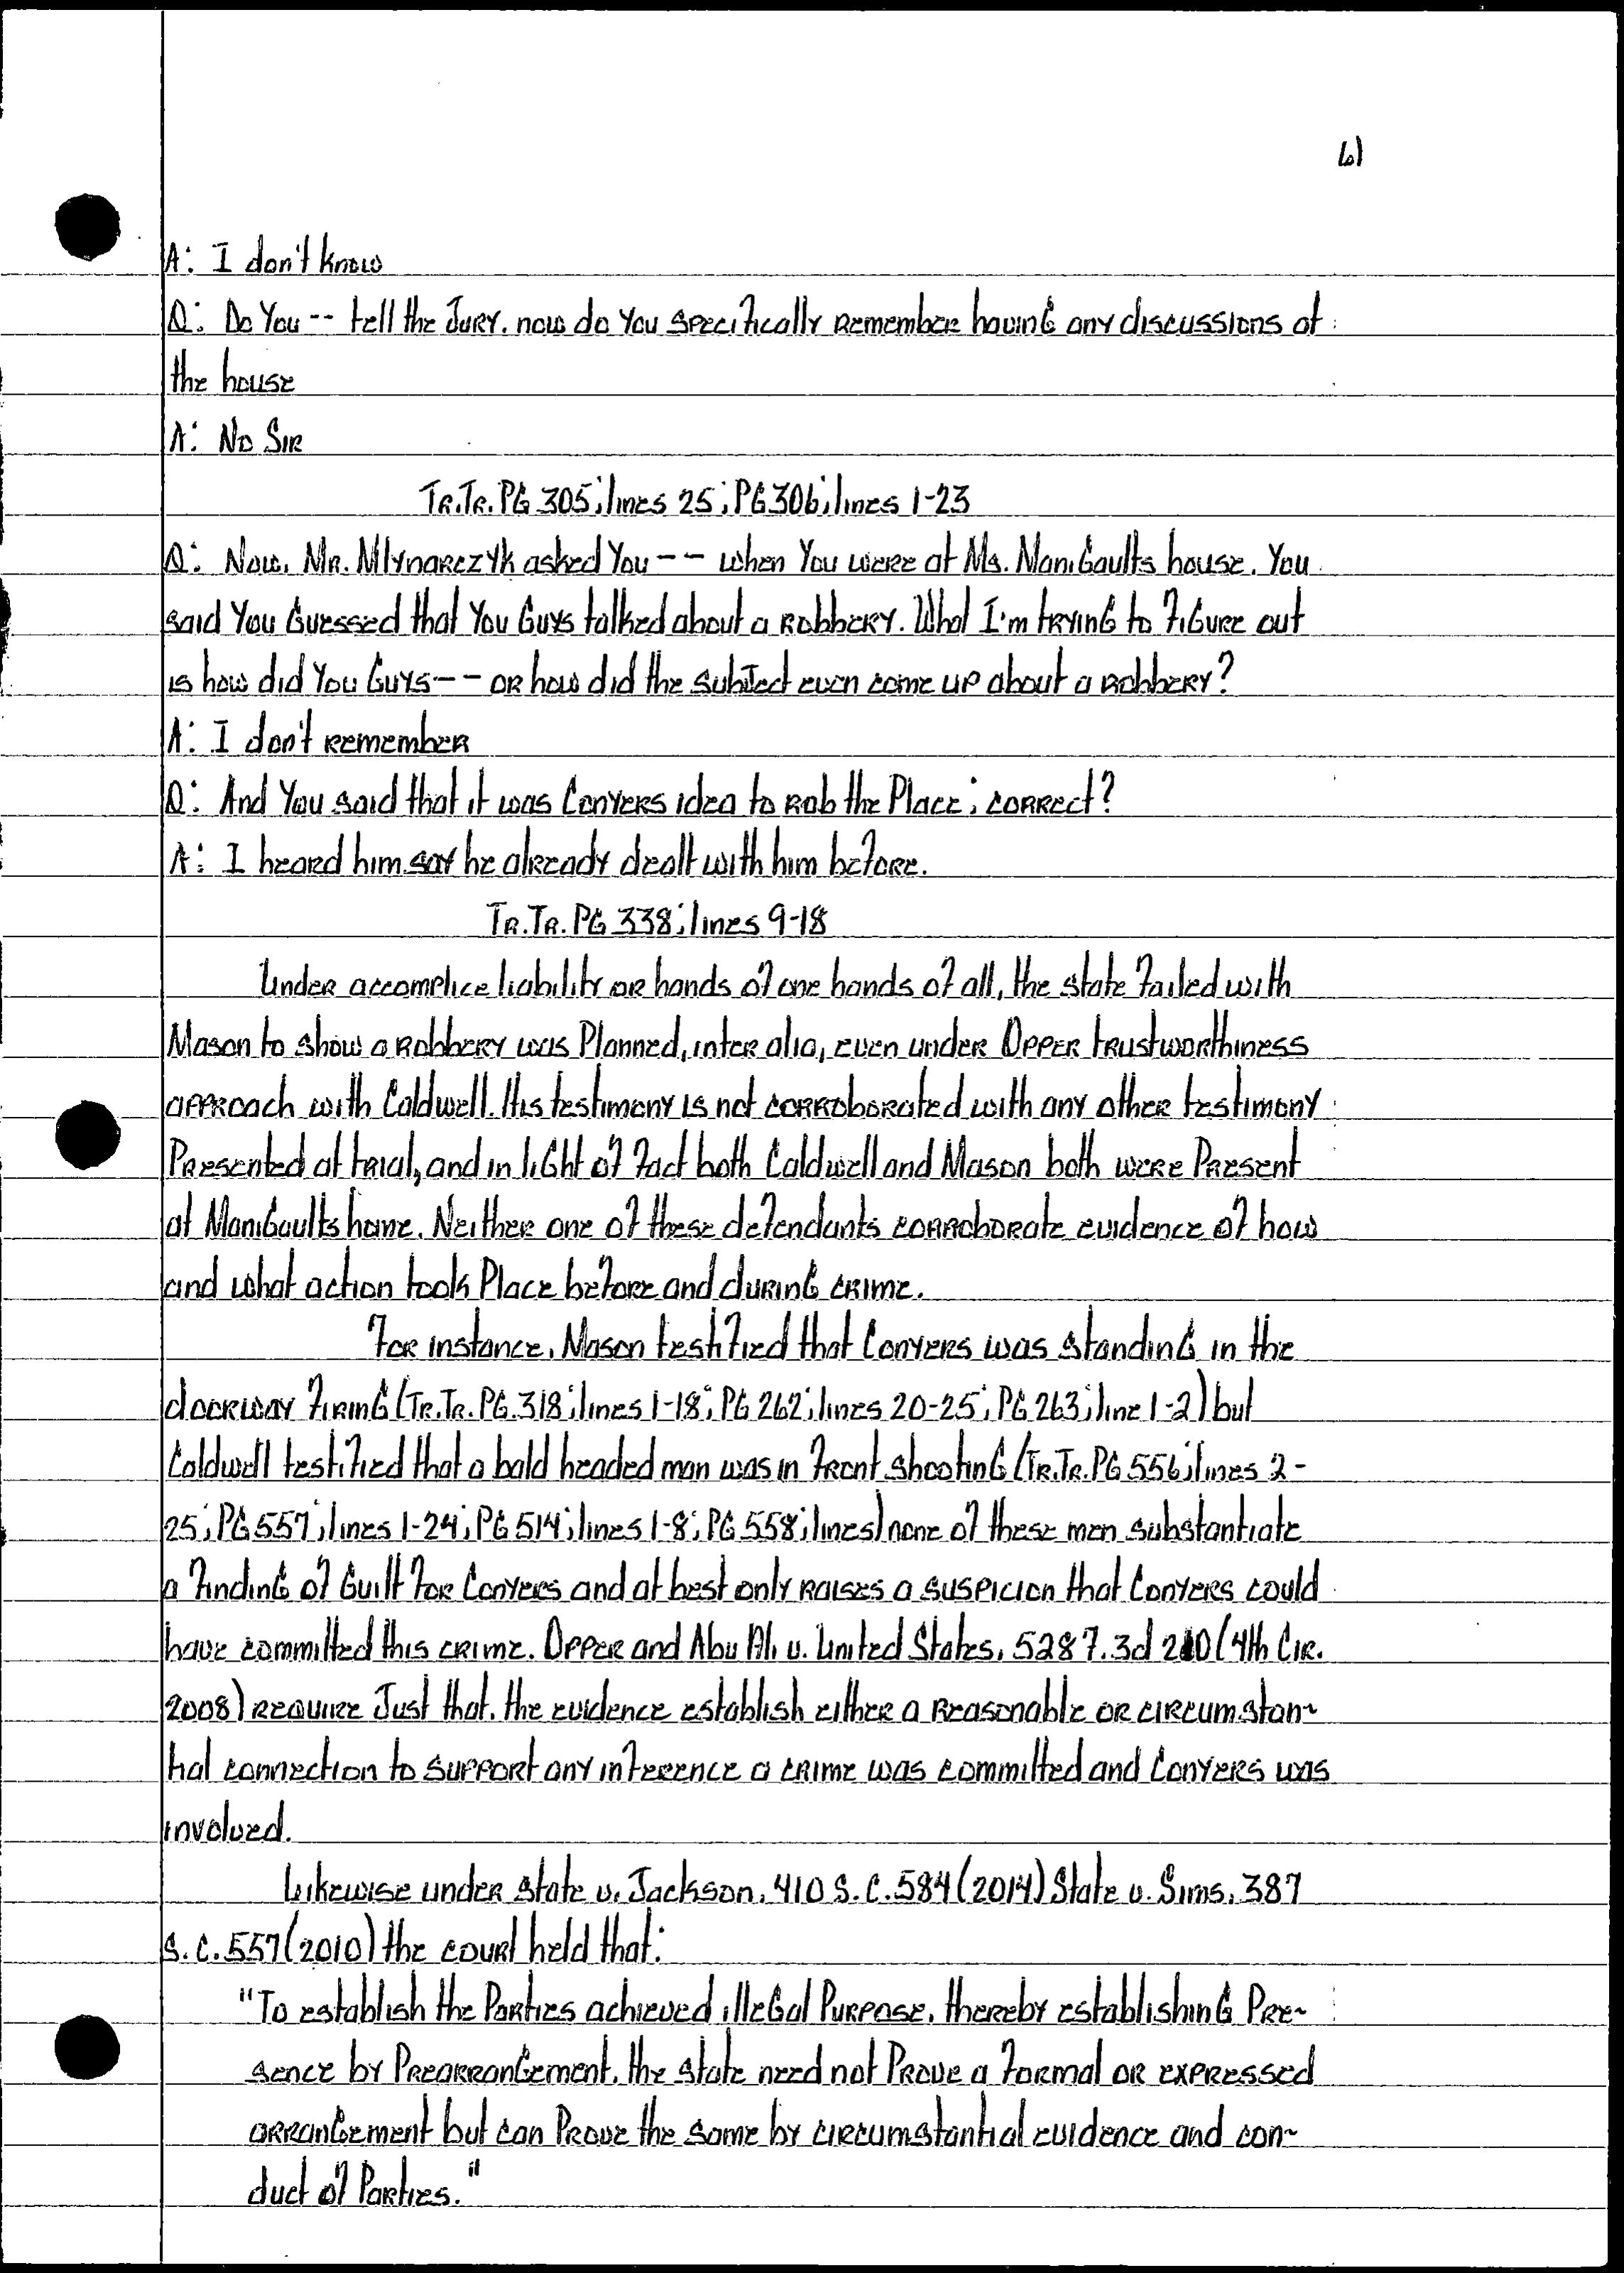 6)
A: I don't know
Q: Do You -- tell the Jury. now do You specifically remember having any discussions at
the house
A: No Sir
Tr.Tr. PG 305; lines 25; PG 306; lines 1-23
Q: Now, Mr. Mlynarczyk asked You -- when You were at Ms. Manigaults house. You
said You Guessed that You Guys talked about a robbery. What I'm trying to figure out
is how did You Guys -- or how did the subject even come up about a robbery?
A: I don't remember
Q: And You said that it was Conyers idea to rob the Place; correct?
A: I heard him say he already dealt with him before.
Tr.Tr. PG 338; lines 9-18
Under accomplice liability or hands of one hands of all, the state failed with
Mason to show a robbery was Planned, inter alia, even under Opper trustworthiness
approach with Caldwell. His testimony is not corroborated with any other testimony
Presented at trial, and in light of fact both Caldwell and Mason both were Present
at Manigaults home. Neither one of these defendants corroborate evidence of how
and what action took Place before and during crime.
For instance, Mason testified that Conyers was standing in the
doorway firing (Tr.Tr. PG. 318; lines 1-18; PG 262; lines 20-25; PG 263; line 1-2) but
Caldwell testified that a bald headed man was in front shooting (Tr.Tr. PG 556; lines 2-
25; PG 557; lines 1-24; PG 514; lines 1-8; PG 558; lines) none of these men substantiate
a finding of Guilt for Conyers and at best only raises a suspicion that Conyers could
have committed this crime. Opper and Abu Ali v. United States, 528 F.3d 210 (4th Cir.
2008) require Just that. the evidence establish either a reasonable or circumstan-
tial connection to support any inference a crime was committed and Conyers was
involved.
Likewise under state v. Jackson, 410 S.C. 584 (2014) State v. Sims, 387
S.C. 557 (2010) the court held that:
"To establish the Parties achieved illegal Purpose, thereby establishing Pre-
sence by Prearrangement, the state need not Prove a formal or expressed
arrangement but can Prove the same by circumstantial evidence and con-
duct of Parties."